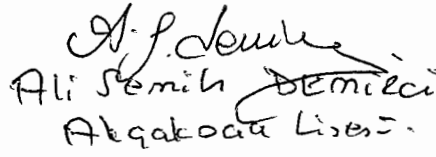 A.S. Demir
Ali Semih DEMİRCİ
Akçakoca Lisesi.